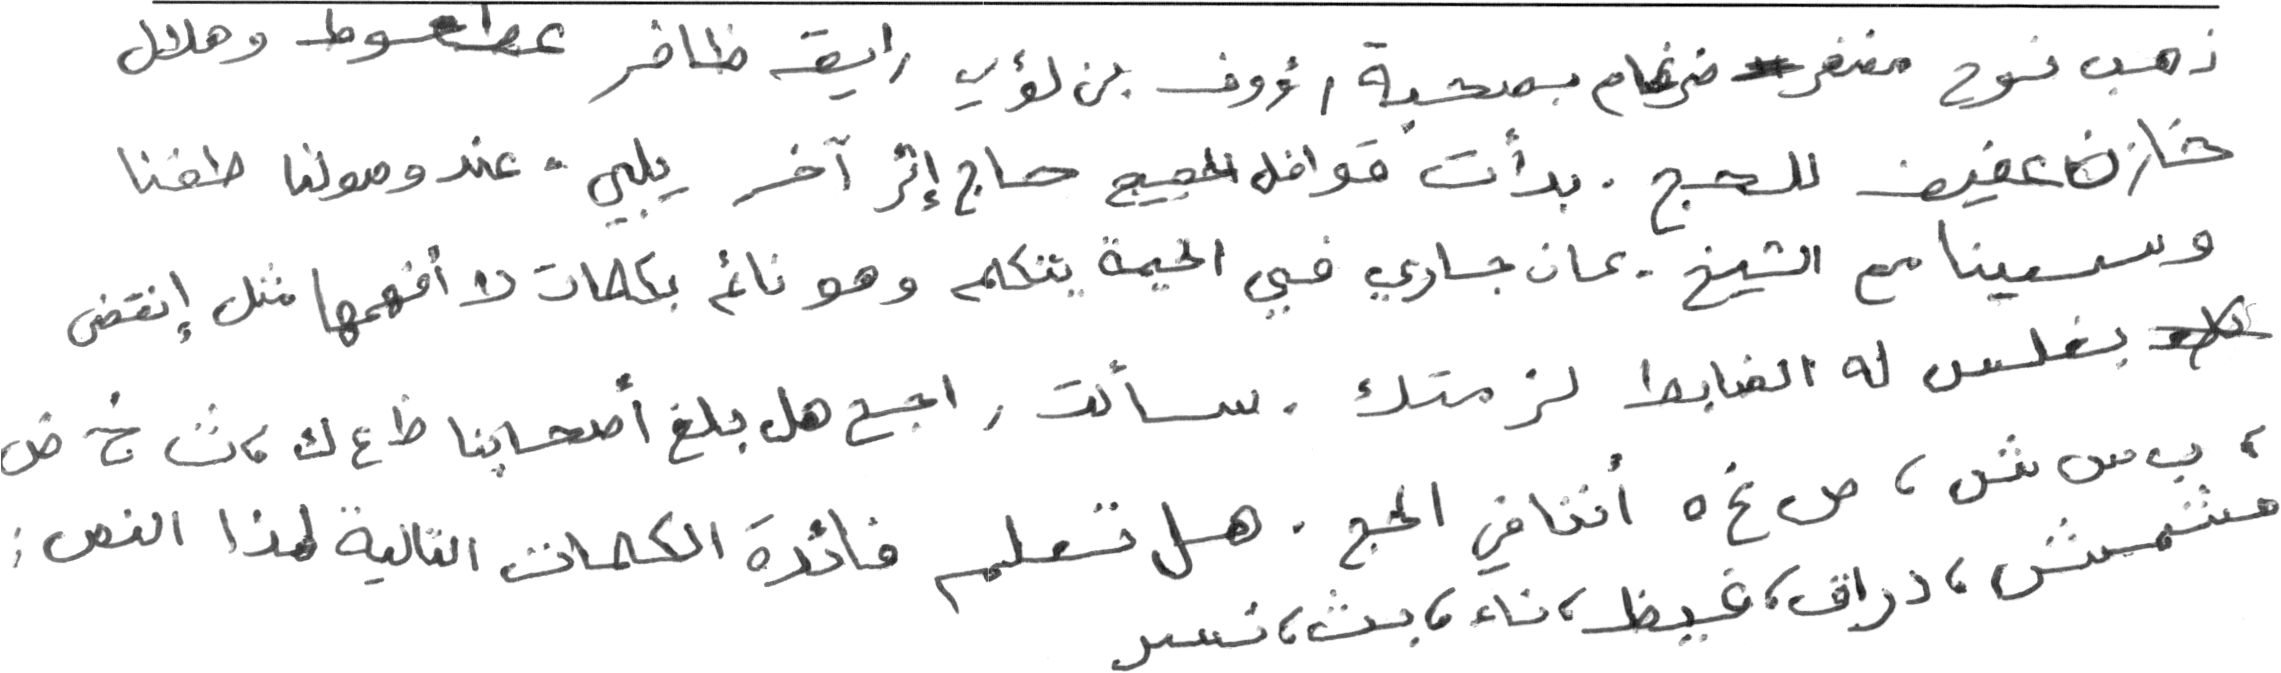 ذهب نوح مضفر ضرغام بصحبة رؤوف بن لؤي رايق ظافر عطعوط وهلال
خازن عفيف للحج . بدأت قوافل الحجيج حاج إثر آخر يلبي . عند وصولنا طفنا
وسعينا مع الشيخ . كان جاري في الخيمة يتكلم وهو نائم بكلمات لا أفهمها مثل إنقض
بغلس له الضابط لزمتك . سألت راجح هل بلغ أصحابنا ظ ع ك ، ث خ ض
، ب س ش ، ص غ ه أننا في الحج . هل تعلم فائدة الكلمات التالية لهذا النص :
مشمش ، دراق ، غيظ ، ناء ، بث ، نسر